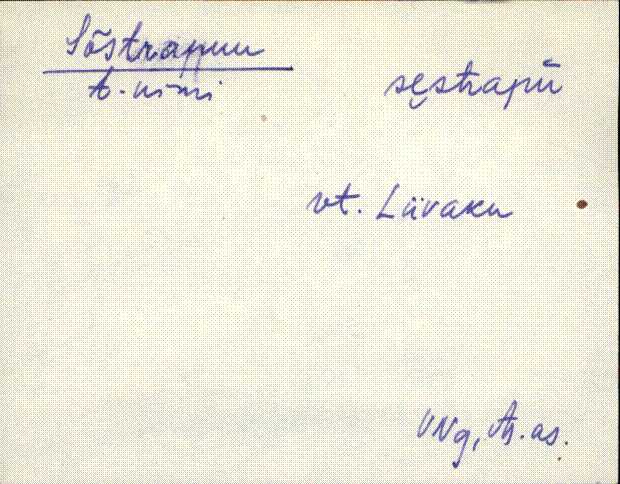 Sõstrapuu
t. nimi
sęstrapū
vt. Liivaku
VNg, as.